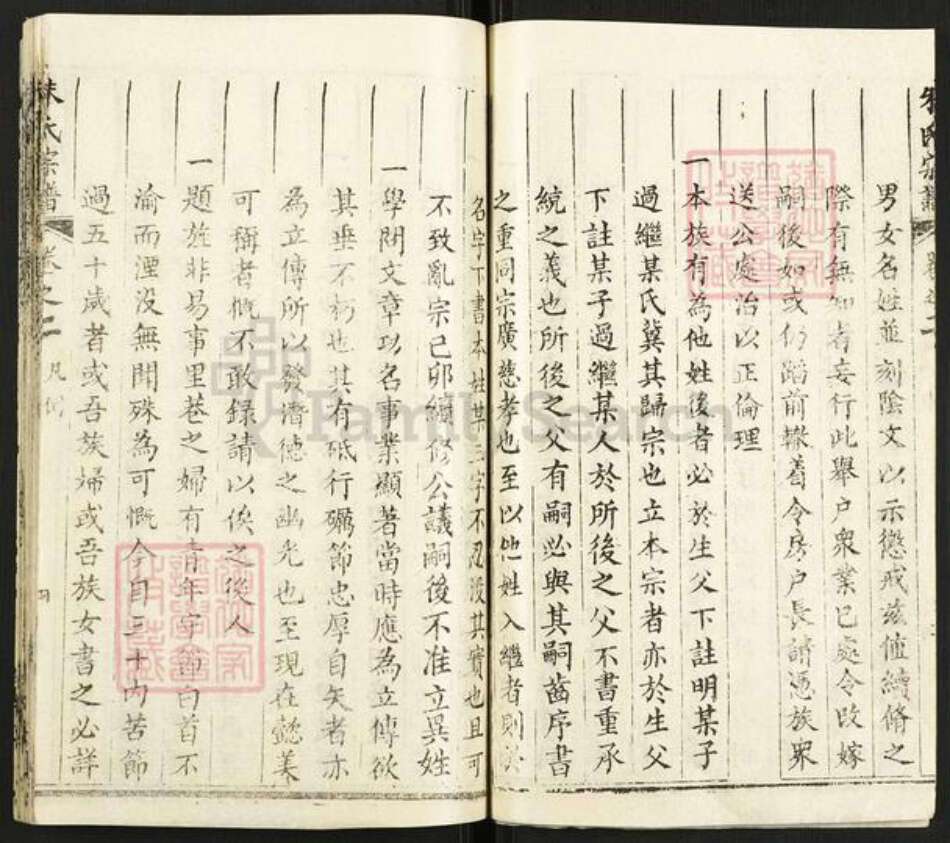 男女名姓並刻陰文以示懲戒茲值續脩之
際有無知者妄行此舉户衆業已處令改嫁
嗣後如或仍蹈前轍着令房户長請憑族衆
送公處治以正倫理
一本族有為他姓後者必於生父下註明某子
過繼某氏冀其歸宗也立本宗者亦於生父
下註某子過繼某人於所後之父不書重承
統之義也所後之父有嗣必與其嗣齒序書
之重同宗廣慈孝也至以他姓入繼者則於
名字下書本姓某三字不忍没其實也且可
不致亂宗己卯續修公議嗣後不准立異姓
一學問文章功名事業顯著當時應為立傳欲
其垂不朽也其有砥行礪節忠厚自矢者亦
為立傳所以發潛德之幽光也至現在懿美
可稱者慨不敢録請以俟之後人
一題旌非易事里巷之婦有青年守節白首不
渝而湮没無聞殊為可慨今自三十内苦節
過五十歲者或吾族婦或吾族女書之必詳
氏宗譜 卷之二 凡例
FamilySearch